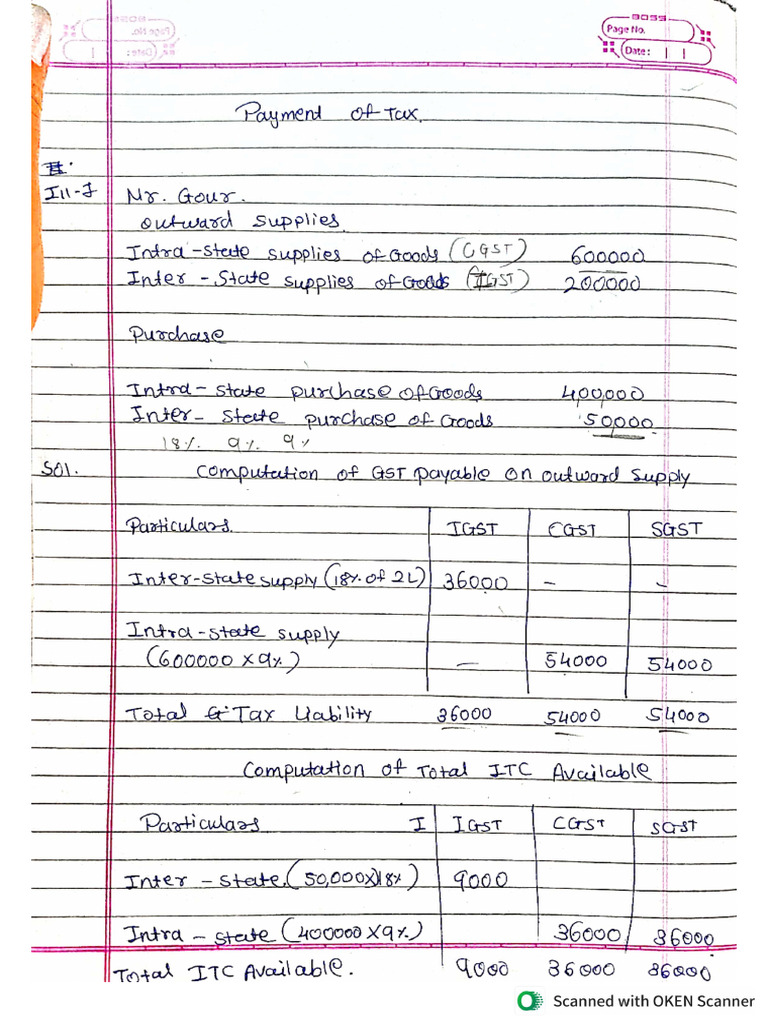 BOSS
Page No.
Date: | |
Payment of Tax.
Ill-I Mr. Gour.
outward supplies.
Intra-state supplies of Goods (CGST) 600000
Inter-State supplies of Goods (IGST) 200000
Purchase
Intra-state purchase of Goods 400,000
Inter-state purchase of Goods 50,000
18% 9% 9%
Sol. Computation of GST payable on outward supply
Particulars IGST CGST SGST
Inter-state supply (18% of 2L) 36000 - -
Intra-state supply
(600000 X 9%) - 54000 54000
Total Tax Liability 36000 54000 54000
Computation of Total ITC Available
Particulars I IGST CGST SGST
Inter-state (50,000X18%) 9000
Intra-state (400000 X 9%) 36000 36000
Total ITC Available. 9000 36000 36000
Scanned with OKEN Scanner